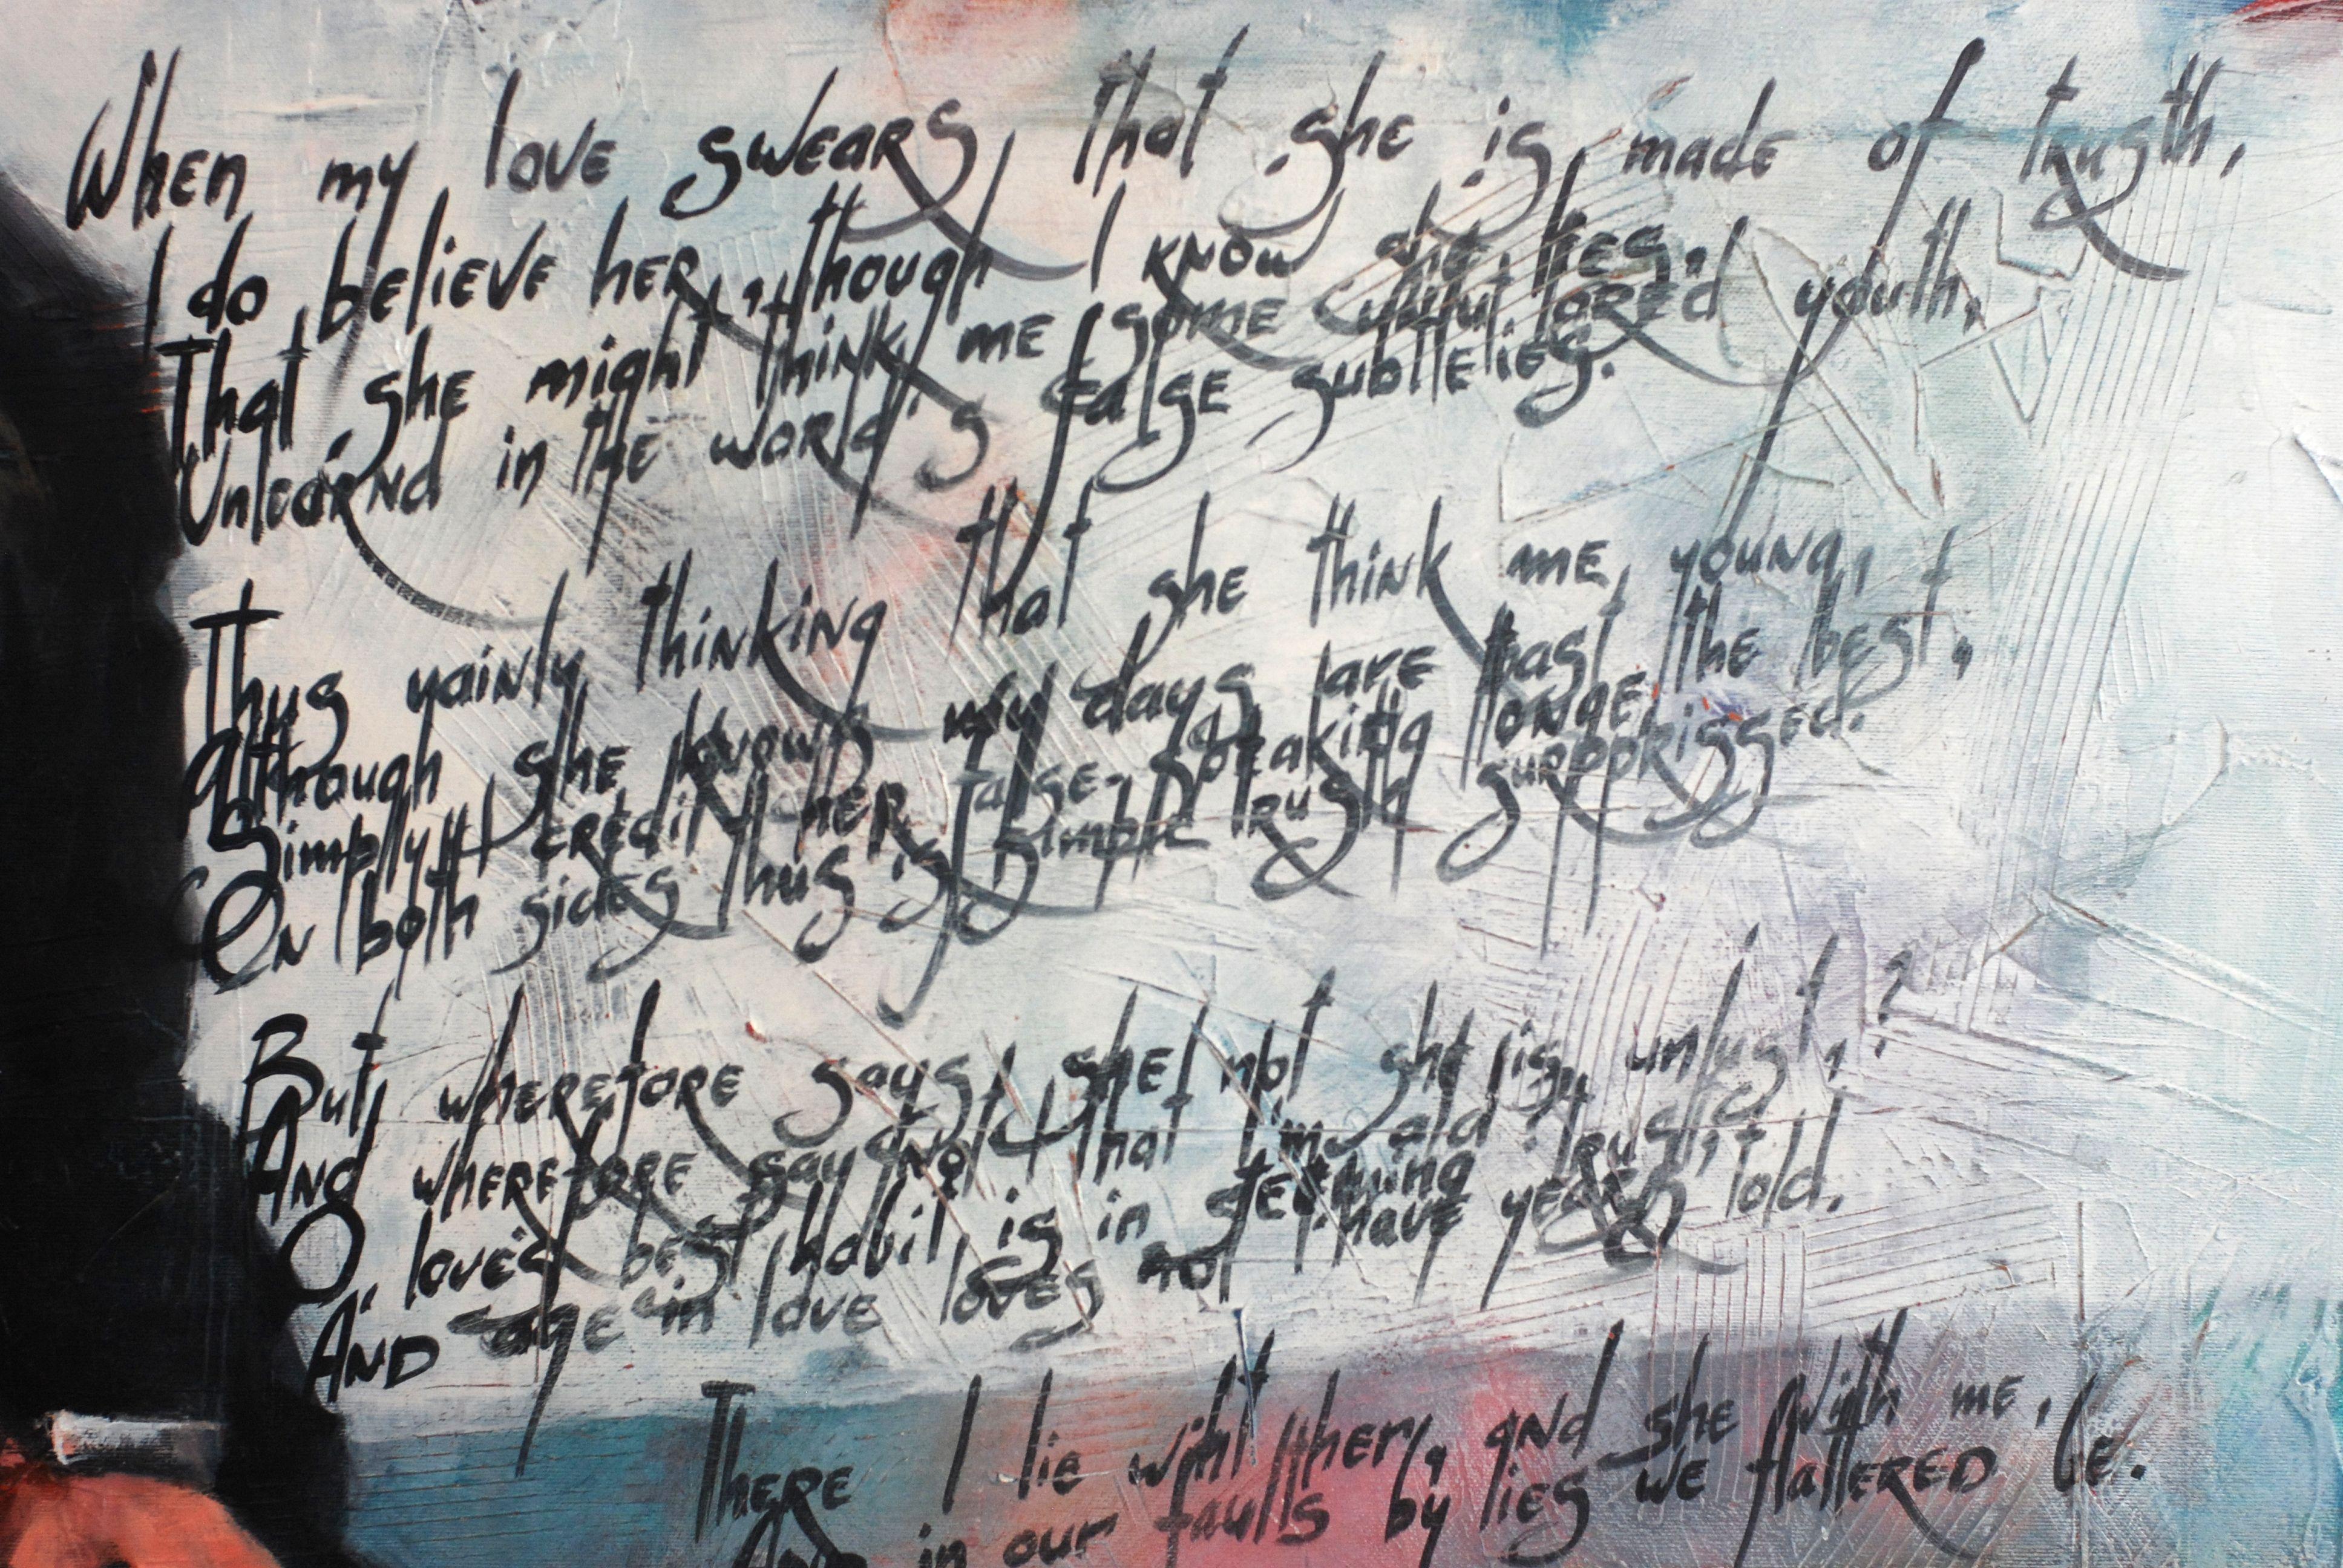 When my love swears that she is made of trusth,
I do believe her, though I know she lies.
That she might think me some untutored youth,
Unlearnd in the world's false subtleties.
Thus vainly thinking that she think me young,
although she knows my days are past the best,
Simply I credit her false-speaking tongue,
On both sides thus is simple trusth supprissed.
But wherefore says she not she is unjust?
And wherefore say not I that I'm old?
O love's best habit is in seeming trust,
AND age in love loves not t'have years told.
There I lie with her, and she with me,
And in our faults by lies we flattered be.